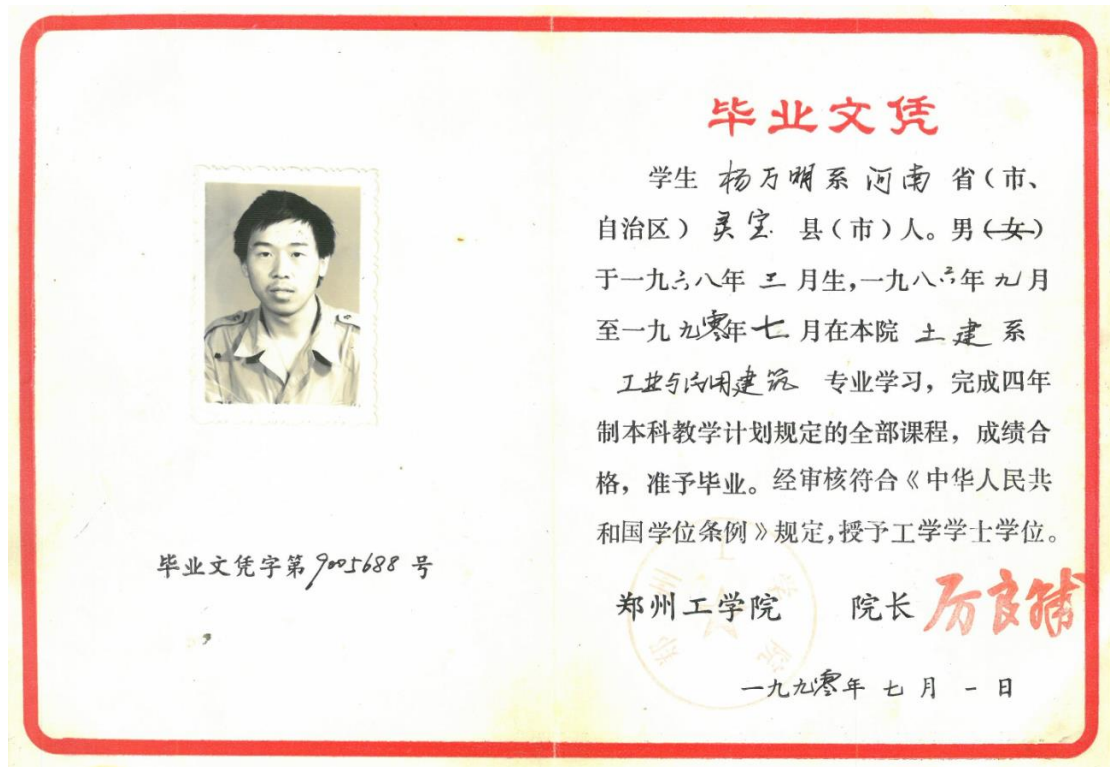 毕业文凭
学生 杨万明系 河南 省（市、
自治区）灵宝 县（市）人。男（女）
于一九六八年 三 月生，一九八六年 九 月
至一九九零年 七 月在本院 土建 系
工业与民用建筑 专业学习，完成四年
制本科教学计划规定的全部课程，成绩合
格，准予毕业。经审核符合《中华人民共
和国学位条例》规定，授予工学学士学位。
郑州工学院 院长 厉良辅
一九九零年 七 月 一 日
毕业文凭字第9005688号